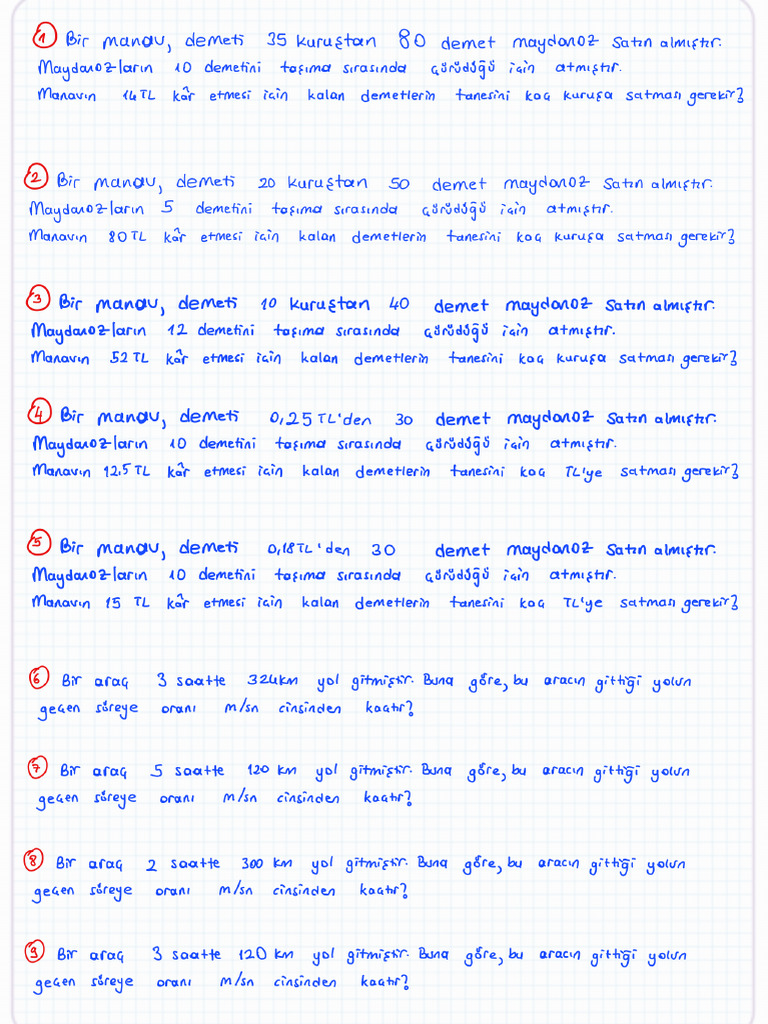 1 Bir manav, demeti 35 kuruştan 80 demet maydanoz satın almıştır.
Maydanozların 10 demetini taşıma sırasında çürüdüğü için atmıştır.
Manavın 14 TL kâr etmesi için kalan demetlerin tanesini kaç kuruşa satması gerekir?
2 Bir manav, demeti 20 kuruştan 50 demet maydanoz satın almıştır.
Maydanozların 5 demetini taşıma sırasında çürüdüğü için atmıştır.
Manavın 80 TL kâr etmesi için kalan demetlerin tanesini kaç kuruşa satması gerekir?
3 Bir manav, demeti 10 kuruştan 40 demet maydanoz satın almıştır.
Maydanozların 12 demetini taşıma sırasında çürüdüğü için atmıştır.
Manavın 52 TL kâr etmesi için kalan demetlerin tanesini kaç kuruşa satması gerekir?
4 Bir manav, demeti 0,25 TL'den 30 demet maydanoz satın almıştır.
Maydanozların 10 demetini taşıma sırasında çürüdüğü için atmıştır.
Manavın 12.5 TL kâr etmesi için kalan demetlerin tanesini kaç TL'ye satması gerekir?
5 Bir manav, demeti 0,18 TL'den 30 demet maydanoz satın almıştır.
Maydanozların 10 demetini taşıma sırasında çürüdüğü için atmıştır.
Manavın 15 TL kâr etmesi için kalan demetlerin tanesini kaç TL'ye satması gerekir?
6 Bir araç 3 saatte 324km yol gitmiştir. Buna göre, bu aracın gittiği yolun
geçen süreye oranı m/sn cinsinden kaçtır?
7 Bir araç 5 saatte 120 km yol gitmiştir. Buna göre, bu aracın gittiği yolun
geçen süreye oranı m/sn cinsinden kaçtır?
8 Bir araç 2 saatte 300 km yol gitmiştir. Buna göre, bu aracın gittiği yolun
geçen süreye oranı m/sn cinsinden kaçtır?
9 Bir araç 3 saatte 120 km yol gitmiştir. Buna göre, bu aracın gittiği yolun
geçen süreye oranı m/sn cinsinden kaçtır?